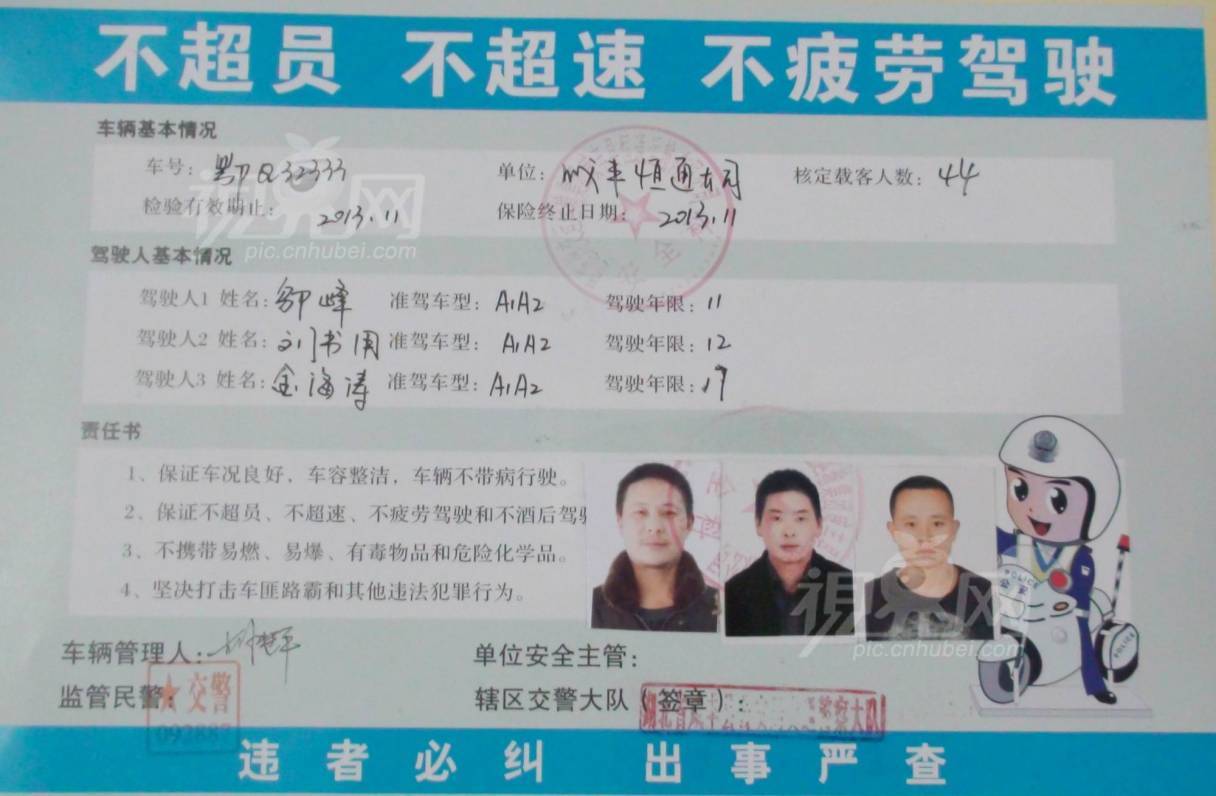 不超员 不超速 不疲劳驾驶
车辆基本情况
车号：鄂Q32333 单位：咸丰恒通公司 核定载客人数：44
检验有效期止：2013.11 保险终止日期：2013.11
视界网
pic.cnhubei.com
驾驶人基本情况
驾驶人1 姓名：邹峰 准驾车型：A1A2 驾驶年限：11
驾驶人2 姓名：刘书国 准驾车型：A1A2 驾驶年限：12
驾驶人3 姓名：金海涛 准驾车型：A1A2 驾驶年限：19
责任书
1、保证车况良好，车容整洁，车辆不带病行驶。
2、保证不超员、不超速、不疲劳驾驶和不酒后驾驶
3、不携带易燃、易爆、有毒物品和危险化学品。
4、坚决打击车匪路霸和其他违法犯罪行为。
POLICE
POLICE
视界网
pic.cnhubei.com
车辆管理人： 单位安全主管：
监管民警： 辖区交警大队（签章）：
交警
092887
违者必纠 出事严查